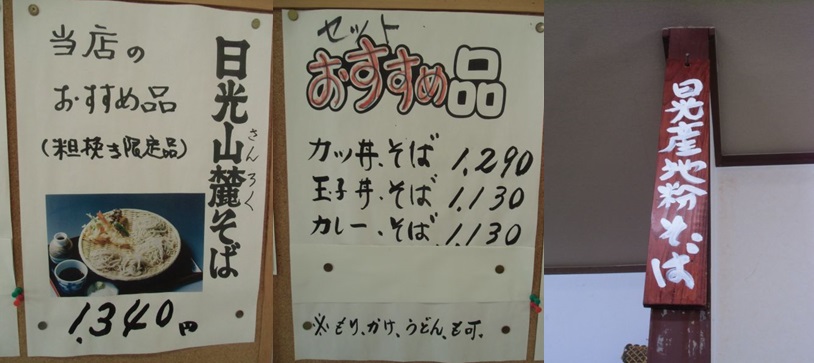 当店の
おすすめ品
(粗挽き限定品)
日光山麓そば
さんろく
1,340円
セット
おすすめ品
カツ丼、そば 1,290
玉子丼、そば 1,130
カレー、そば 1,130
※もり、かけ、うどん、も可。
日光産地粉そば